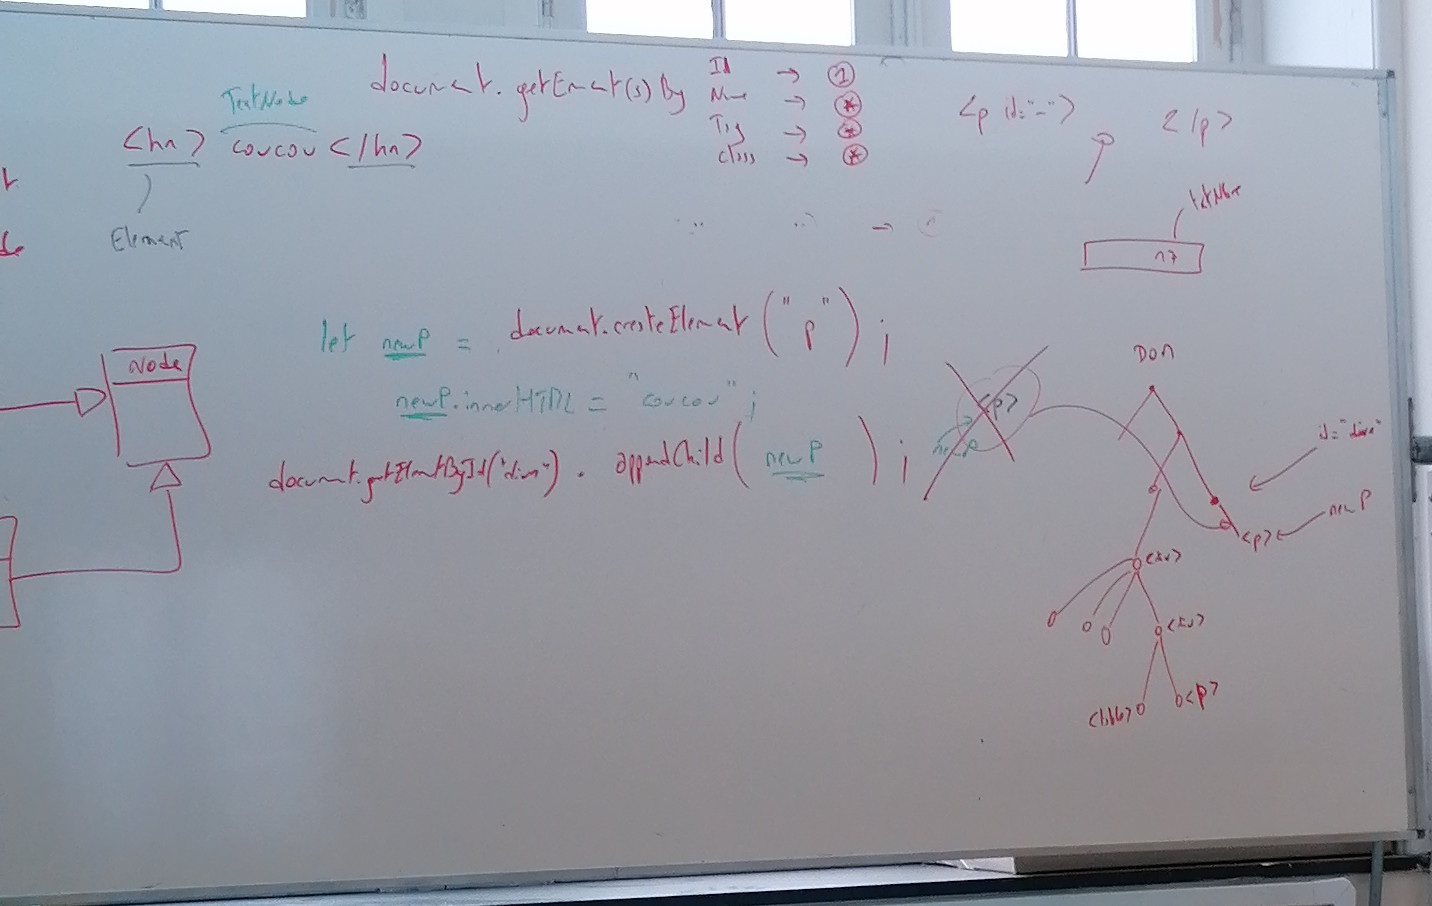 TextNode
<h1> coucou </h1>
Element
document.getEment(s) By
Id → 1
Name → *
Tag → *
Class → *
<p id="-"> </p>
17
let newP = document.createElement("p");
newP.innerHTML = "coucou";
document.getElmentById("dime").appendChild(newP);
Node
<p>
newP
DOM
id="dime"
<p>
newP
<p>